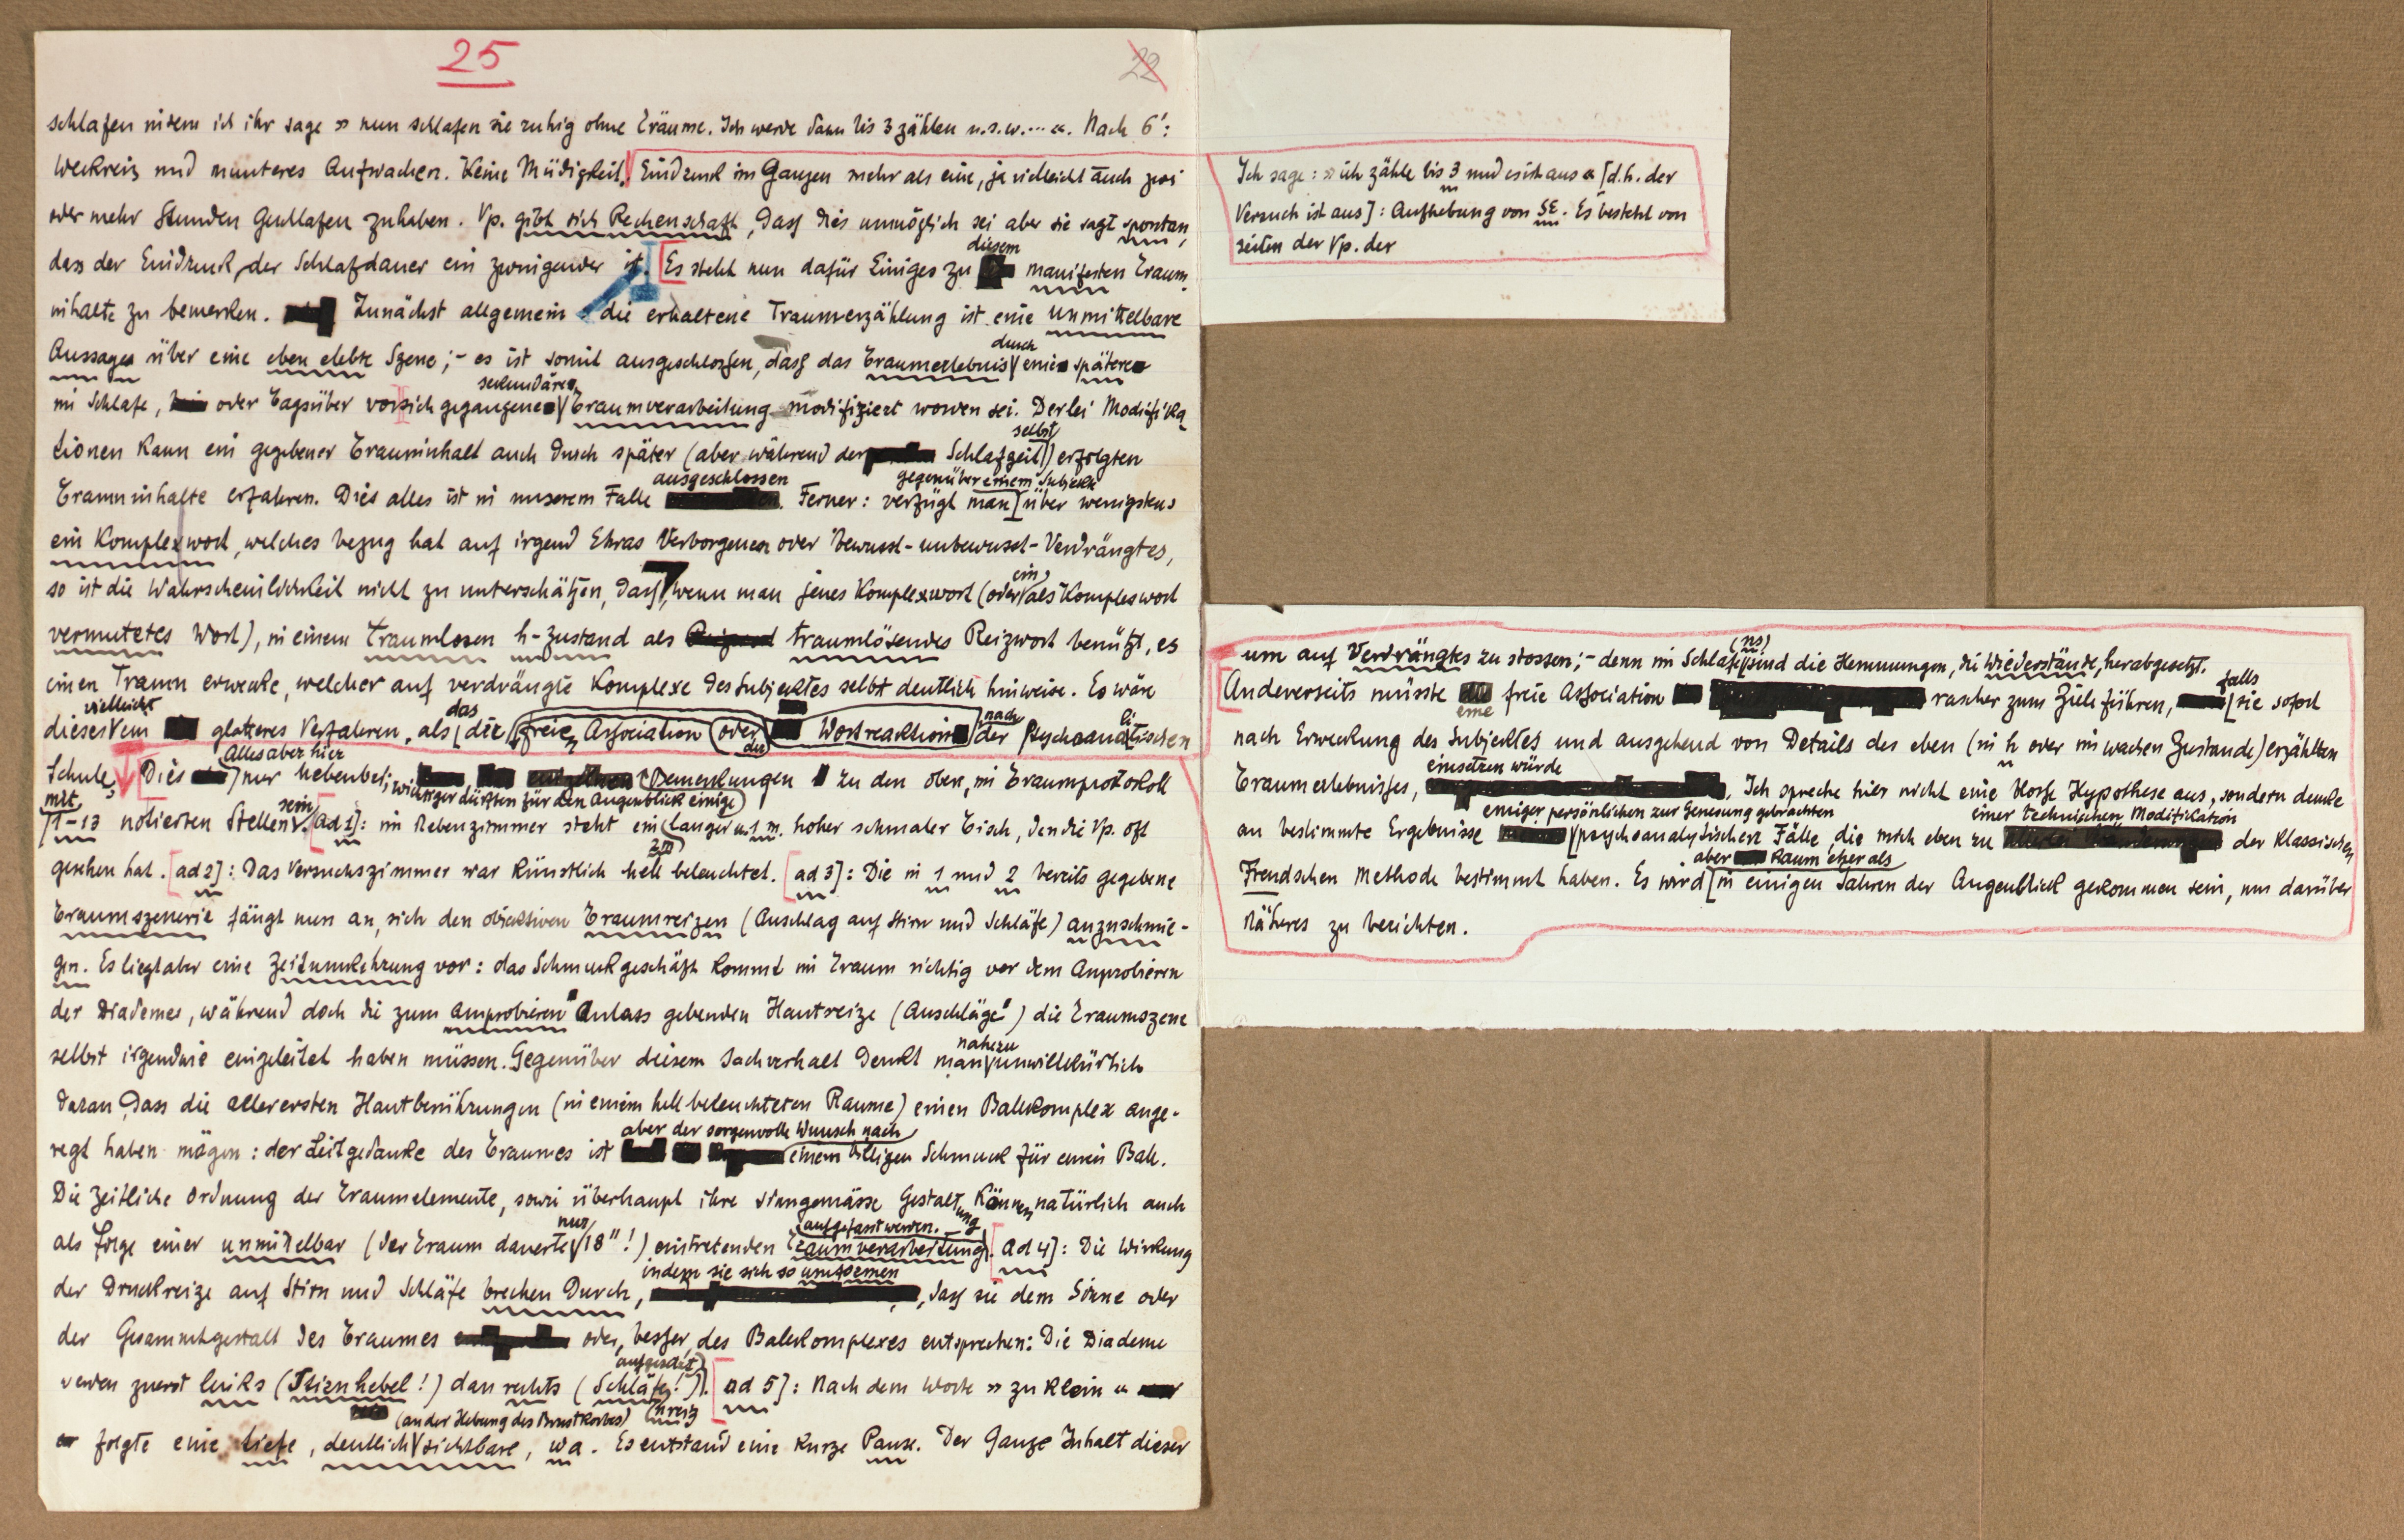 25
22
schlafen indem ich ihr sage » nun schlafen sie ruhig ohne Träume. Ich werde dann bis 3 zählen u.s.w.... «. Nach 6':
Weckreiz und munteres Aufwachen. Keine Müdigkeit. Eindruck im Ganzen mehr als eine, ja vielleicht auch zwei
oder mehr Stunden geschlafen zu haben. Vp. gibt sich Rechenschaft, dass dies unmöglich sei aber sie sagt spontan,
dass der Eindruck der Schlafdauer ein zwingender ist. [Es steht nun dafür Einiges zu diesem manifesten Traum-
inhalte zu bemerken. Zunächst allgemein die erhaltene Traumerzählung ist eine unmittelbare
Aussage über eine eben elebte Szene; - es ist somit ausgeschlossen, dass das Traumerlebnis durch eine spätere
im Schlafe, oder Tagsüber vorsichgegangene sekundäre Traumverarbeitung modifiziert worden sei. Derlei Modifika-
tionen kann ein gegebener Trauminhalt auch durch später (aber während der Schlafzeit selbst) erfolgten
Trauminhalte erfahren. Dies alles ist in unserem Falle ausgeschlossen. Ferner: verfügt man gegenüber einem Subjekte über wenigstens
ein Komplexwort, welches bezug hat auf irgend Etwas Verborgenes oder Bewusst-unbewusst-Verdrängtes,
so ist die Wahrscheinlichkeit nicht zu unterschätzen, dass, wenn man jenes Komplexwort (oder ein als Komplexwort
vermutetes Wort), in einem traumlosen h-Zustand als traumlösendes Reizwort benützt, es
einen Traum erwecke, welcher auf verdrängte Komplexe des Subjektes selbst deutlich hinweise. Es wäre
dieses vielleicht ein glatteres Verfahren, als das die freie Association oder die Wortreaktion nach der psychoanalitischen
Schule. [Dies Alles aber hier nur nebenbei; wichtiger dürften für den Augenblick einige Bemerkungen zu den oben, im Traumprotokoll
mit 1-13 notierten Stellen sein. [ad 1]: im Nebenzimmer steht ein langer u. 1 m. hoher schmaler Tisch, den die Vp. oft
gesehen hat. [ad 2]: Das Versuchszimmer war künstlich hell beleuchtet. [ad 3]: Die in 1 und 2 bereits gegebene
Traumszenerie fängt nun an, sich den objektiven Traumreizen (Anschlag auf Stirn und Schläfe) anzuschmie-
gen. Es liegt aber eine Zeitumkehrung vor: das Schmuckgeschäft kommt im Traum richtig vor dem Anprobieren
der Diademes, während doch die zum Anprobieren Anlass gebenden Hautreize (Anschläge!) die Traumszene
selbst irgendwie eingeleitet haben müssen. Gegenüber diesem Sachverhalt denkt man nahezu unwillkürlich
daran, dass die allerersten Hautberührungen (in einem hell beleuchteten Raume) einen Ballkomplex ange-
regt haben mögen: der Leitgedanke des Traumes ist aber der sorgenvolle Wunsch nach einem billigen Schmuck für einen Ball.
Die zeitliche Ordnung der Traumelemente, sowie überhaupt ihre sinngemässe Gestaltung können natürlich auch
als Folge einer unmittelbar (der Traum dauerte nur 18"!) eintretenden Traumverarbeitung aufgefasst werden. [ad 4]: Die Wirkung
der Druckreize auf Stirn und Schläfe brechen durch, indem sie sich so umformen, dass sie dem Sinne oder
der Gesammtgestalt des Traumes oder, besser, des Ballkomplexes entsprechen: Die Diademe
werden zuerst links (Stirnhebel!) dan rechts (Schläfe!) aufgesetzt). [ad 5]: Nach dem Worte » zu klein «
folgte eine tiefe, deutlich (an der Hebung des Brustkorbes) sichtbare, wa. Es entstand eine kurze Pause. Der Ganze Inhalt dieser
Ich sage: » ich zähle bis 3 und es ist aus « [d.h. der
Versuch ist aus]: Aufhebung von SE. Es besteht von
seiten der Vp. der
um auf Verdrängtes zu stossen; - denn im Schlafe (ns) sind die Hemmungen, die Wiederstände, herabgesetzt.
Andererseits müsste eine freie Association rascher zum Ziele führen, falls sie sofort
nach Erweckung des Subjektes und ausgehend von Details des eben (in h oder im wachen Zustande) erzählten
Traumerlebnisses, einsetzen würde. Ich spreche hier nicht eine blosse Hypothese aus, sondern denke
an bestimmte Ergebnisse einiger persönlichen zur Genesung gebrachten psychoanalytischen Fälle, die mich eben zu einer technischen Modifikation der klassischen
Freudschen Methode bestimmt haben. Es wird aber kaum eher als in einigen Jahren der Augenblick gekommen sein, um darüber
Näheres zu berichten.